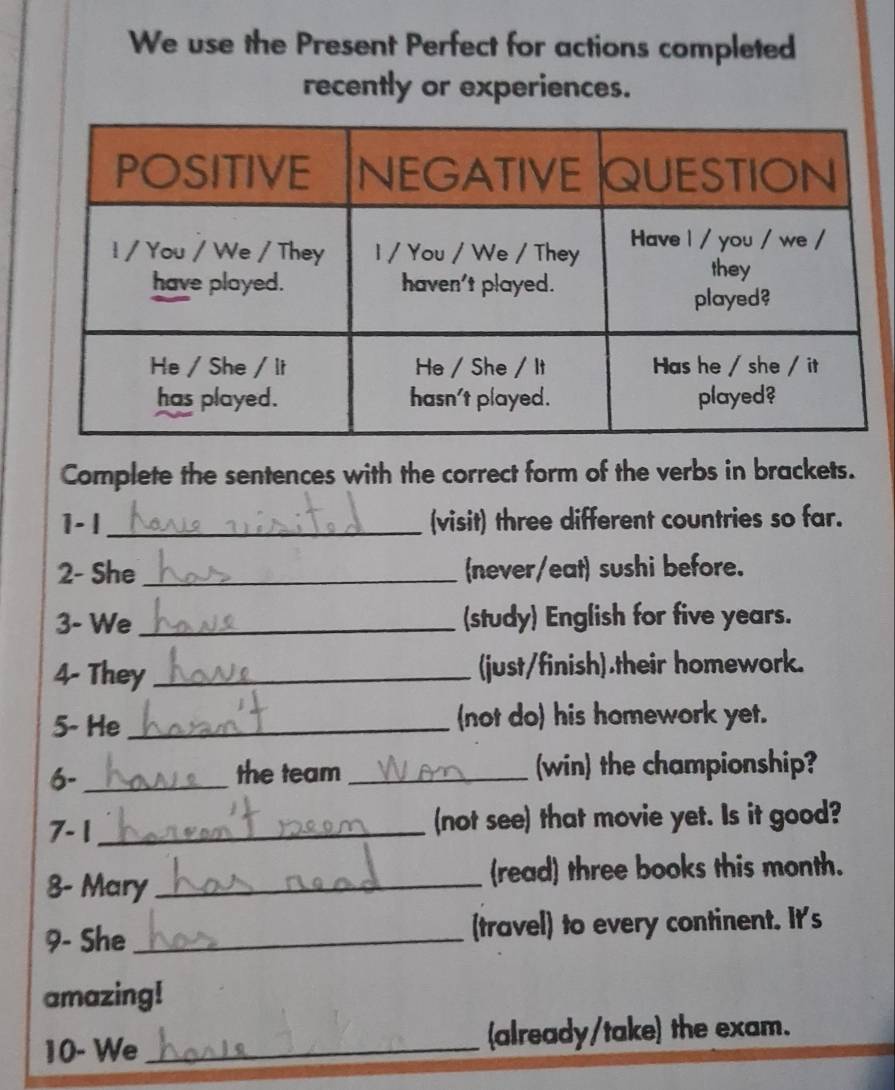 We use the Present Perfect for actions completed
recently or experiences.
POSITIVE NEGATIVE QUESTION
I / You / We / They
have played.
I / You / We / They
haven't played.
Have I / you / we /
they
played?
He / She / It
has played.
He / She / It
hasn't played.
Has he / she / it
played?
Complete the sentences with the correct form of the verbs in brackets.
1- I have visited (visit) three different countries so far.
2- She has (never/eat) sushi before.
3- We have (study) English for five years.
4- They have (just/finish) their homework.
5- He hasn't (not do) his homework yet.
6- have the team won (win) the championship?
7- I haven't seen (not see) that movie yet. Is it good?
8- Mary has read (read) three books this month.
9- She has (travel) to every continent. It's
amazing!
10- We have (already/take) the exam.